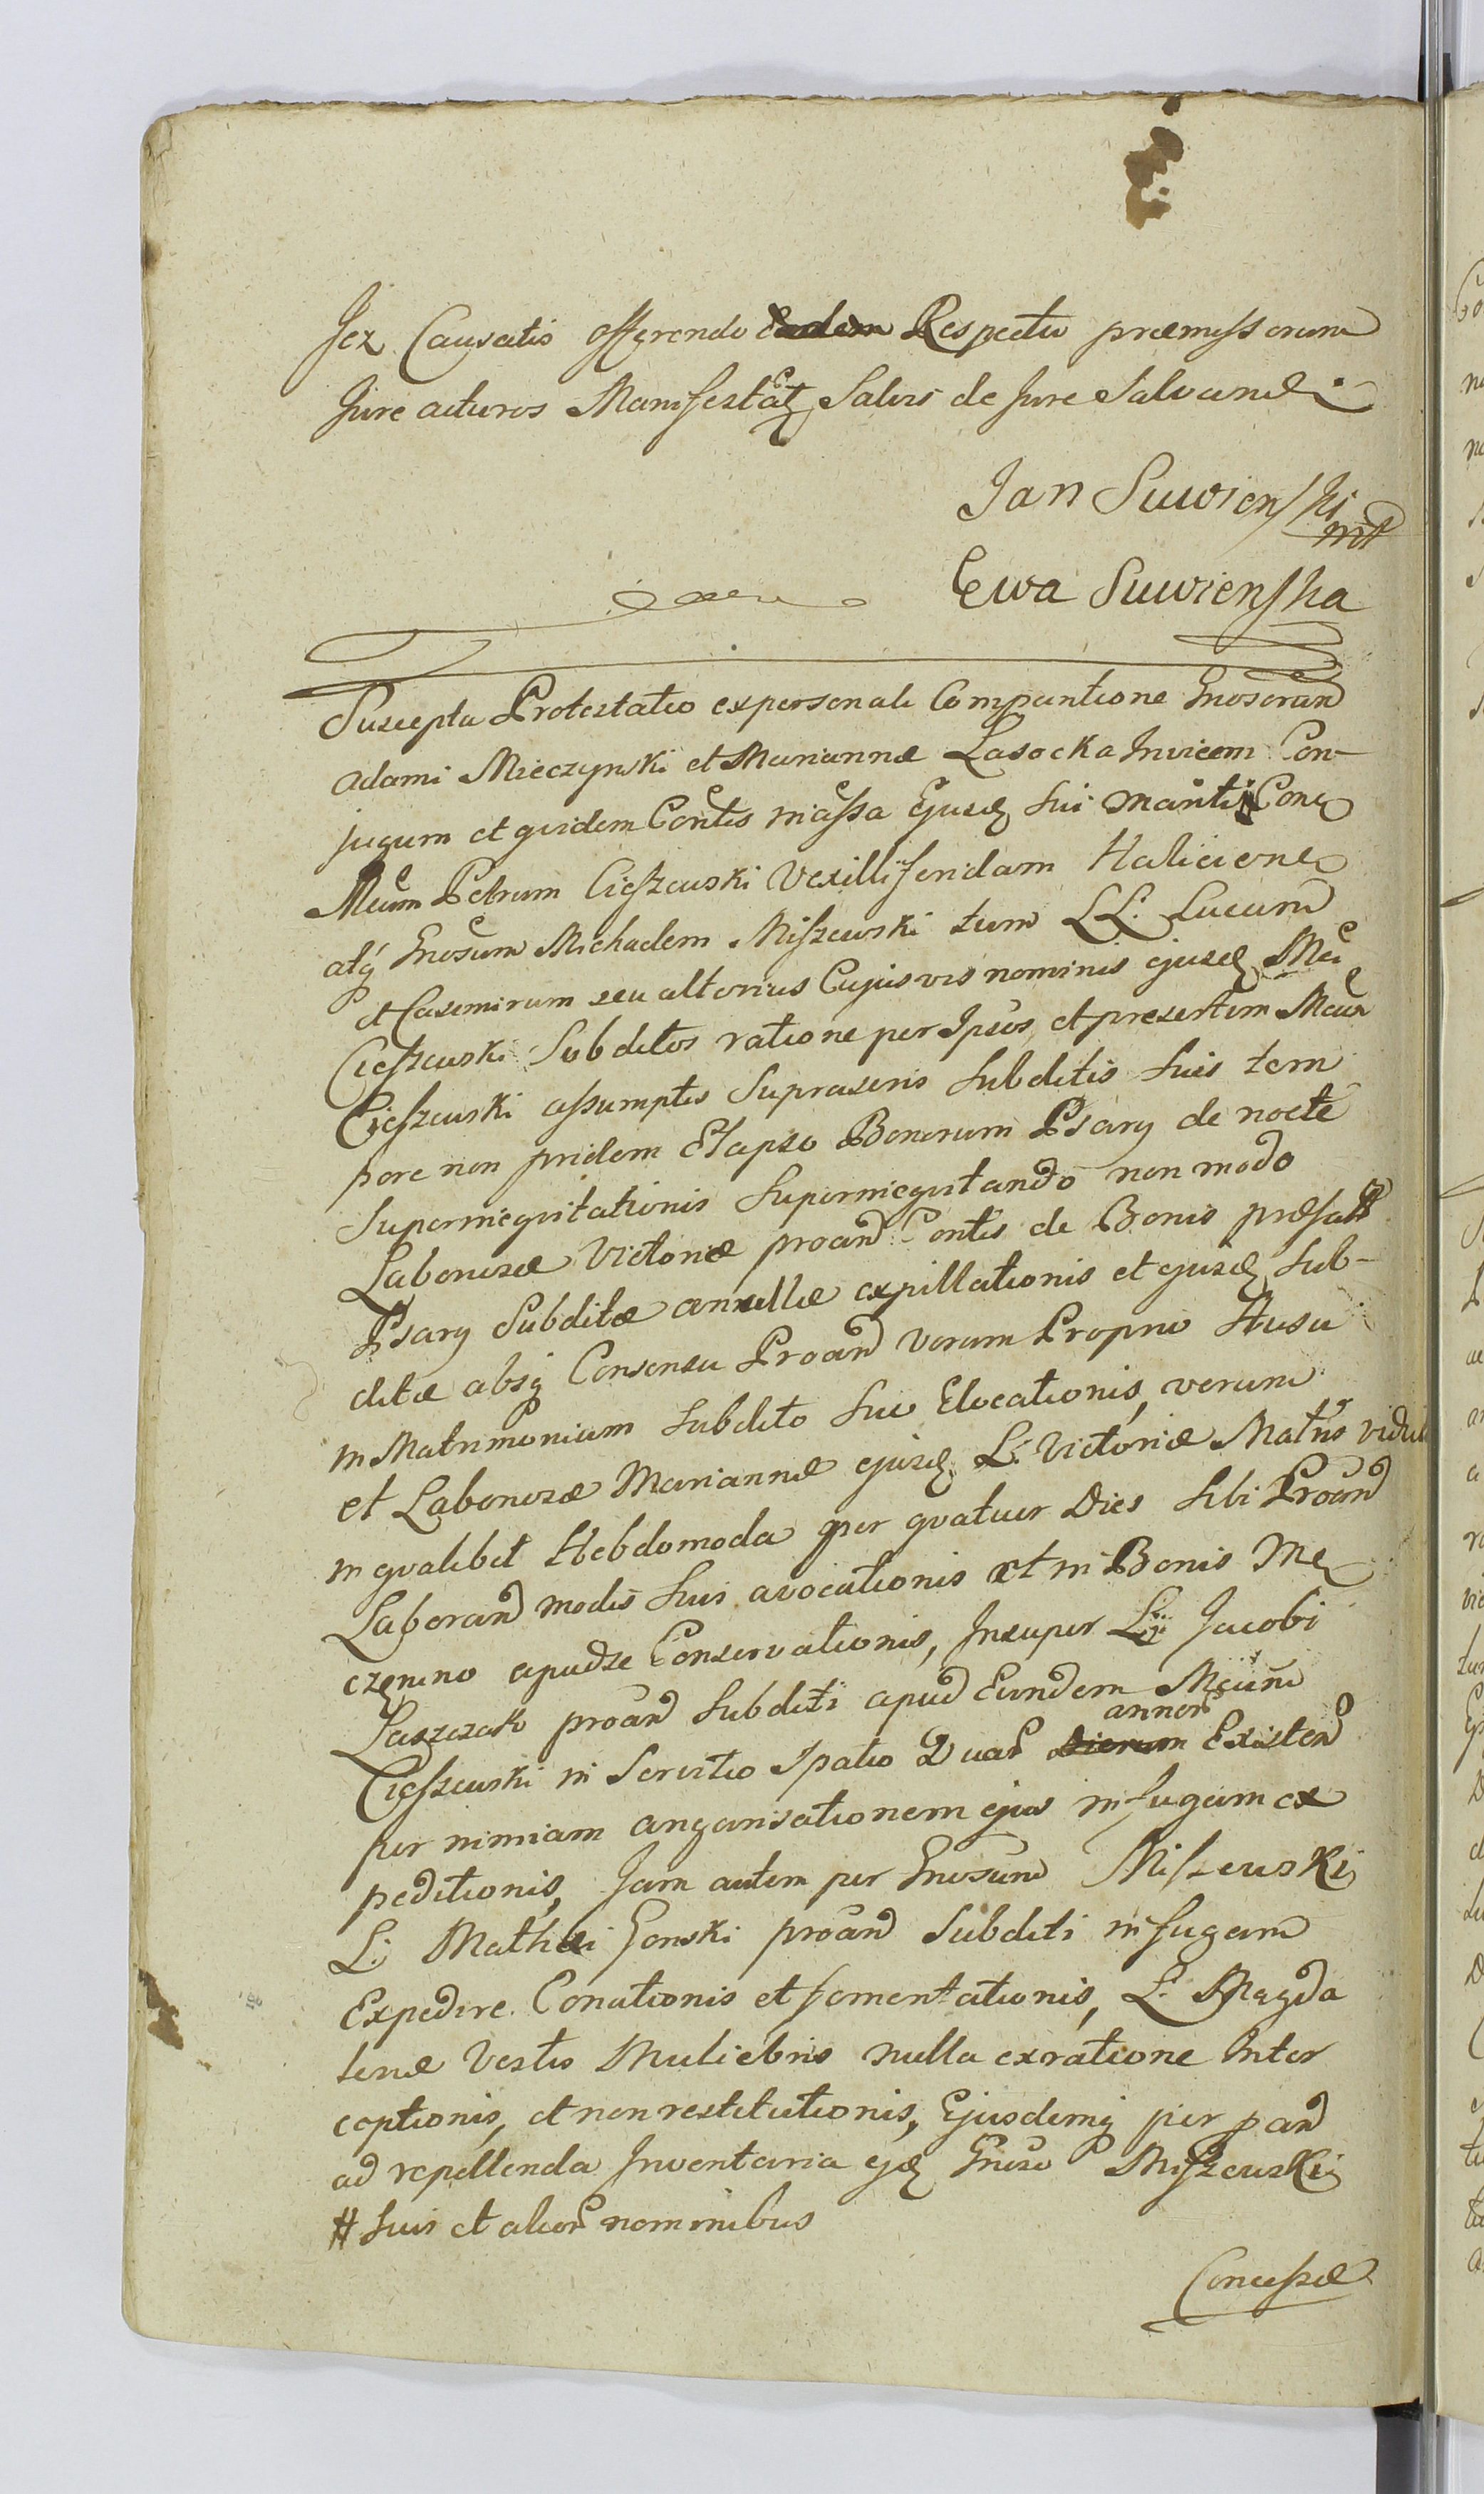 sez Causatis offerendo Respectu præmissorum
Jure acturos Manifestatq Salvis de Jure Salvand
Jan Suwienski
mp
Ewa Suwienska
Suscepta Protestatio ex personali Comparitione Gnosorum
Adami Mieczynski et Mariannæ Lasocka Invicem Con-
jugum et quidem Contis in assa Ejusd sui mariti Cone
Mcum Petrum Cieszewski Vexilliferidam Halicione
atq Gnosum Michaelem Miszewski tum LL. Lucum
et Casimirum seu alterius Cujusvis nominis ejusd Mci
Cieszewski Subditos ratione per Ipsos, et presertim Mcum
Cieszewski assumptis Suprascris Subditis suis tem
pore non pridem Elapso Bonorum Psary de nocte
Superinequitationis Superinequitando non modo
Laboriosæ Victoriæ proand Contis de Bonis præfatt
Psary Subditæ ancillæ expillationis et ejusd Sub-
ditæ absq Consensu Proand verum Proprio Ausu
in Matrimonium subdito suo Elocationis, verum
et Laboriosæ Mariannæ ejusd L. Victoriæ Matris vidu
in qualibet Hebdomoda per quatuor Dies sibi Proand
Laborand modis suis avocationis et in Bonis Me
czenino apudse Conservationis, Insuper L. Jacobi
Laszczak proand Subditi apud Eundem Mcum
annor
Cieszewski in Servitio Spatio Duar dierum Existend
per nimiam angarisationem ejus in fugam ex
peditionis, Jam autem per Gnosum Miszewski
L. Mathæi Gorski proand Subditi in fugam
Expedire Conationis et fomentationis, L. Magda
lenæ Vestis Muliebris nulla ex ratione Inter
ceptionis, et non restitutionis, Ejusdemq per pand
ad repellenda Inventaria ejd Gnoso Miszewski
# suis et alior nominibus
Concessæ